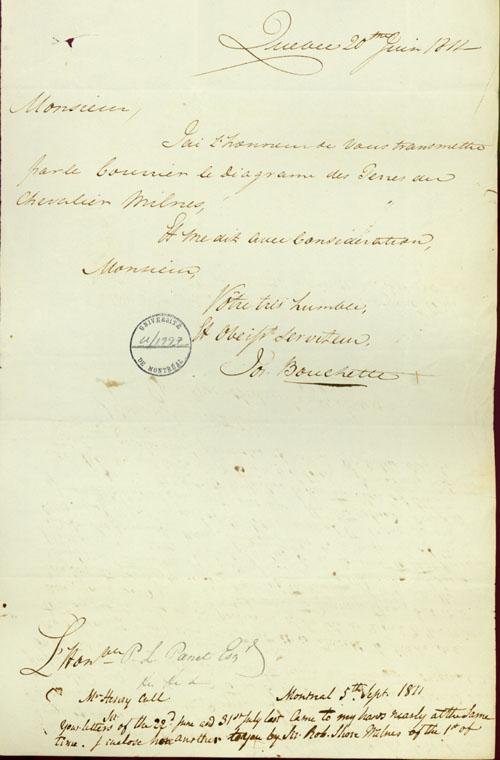 Quebec 20me Juin 1811
Monsieur,
J'ai l'honneur de vous transmettre
par le Courrier le diagrame des Terres du
Chevalier Milnes,
Et me dit avec Consideration,
Monsieur,
Vôtre très humble,
Et Obeisst. Serviteur,
Jos. Bouchette
UNIVERSITÉ
DE MONTRÉAL
L'Honble P. L. Panet Esqr
&c &c &
Mr Henry Cull
Montreal 5th Sept. 1811
Sir
Your letters of the 22d June and 31st July last Came to my hands nearly at the Same
time. I inclose another to you by Sir Rob. Shore Milnes of the 1st of